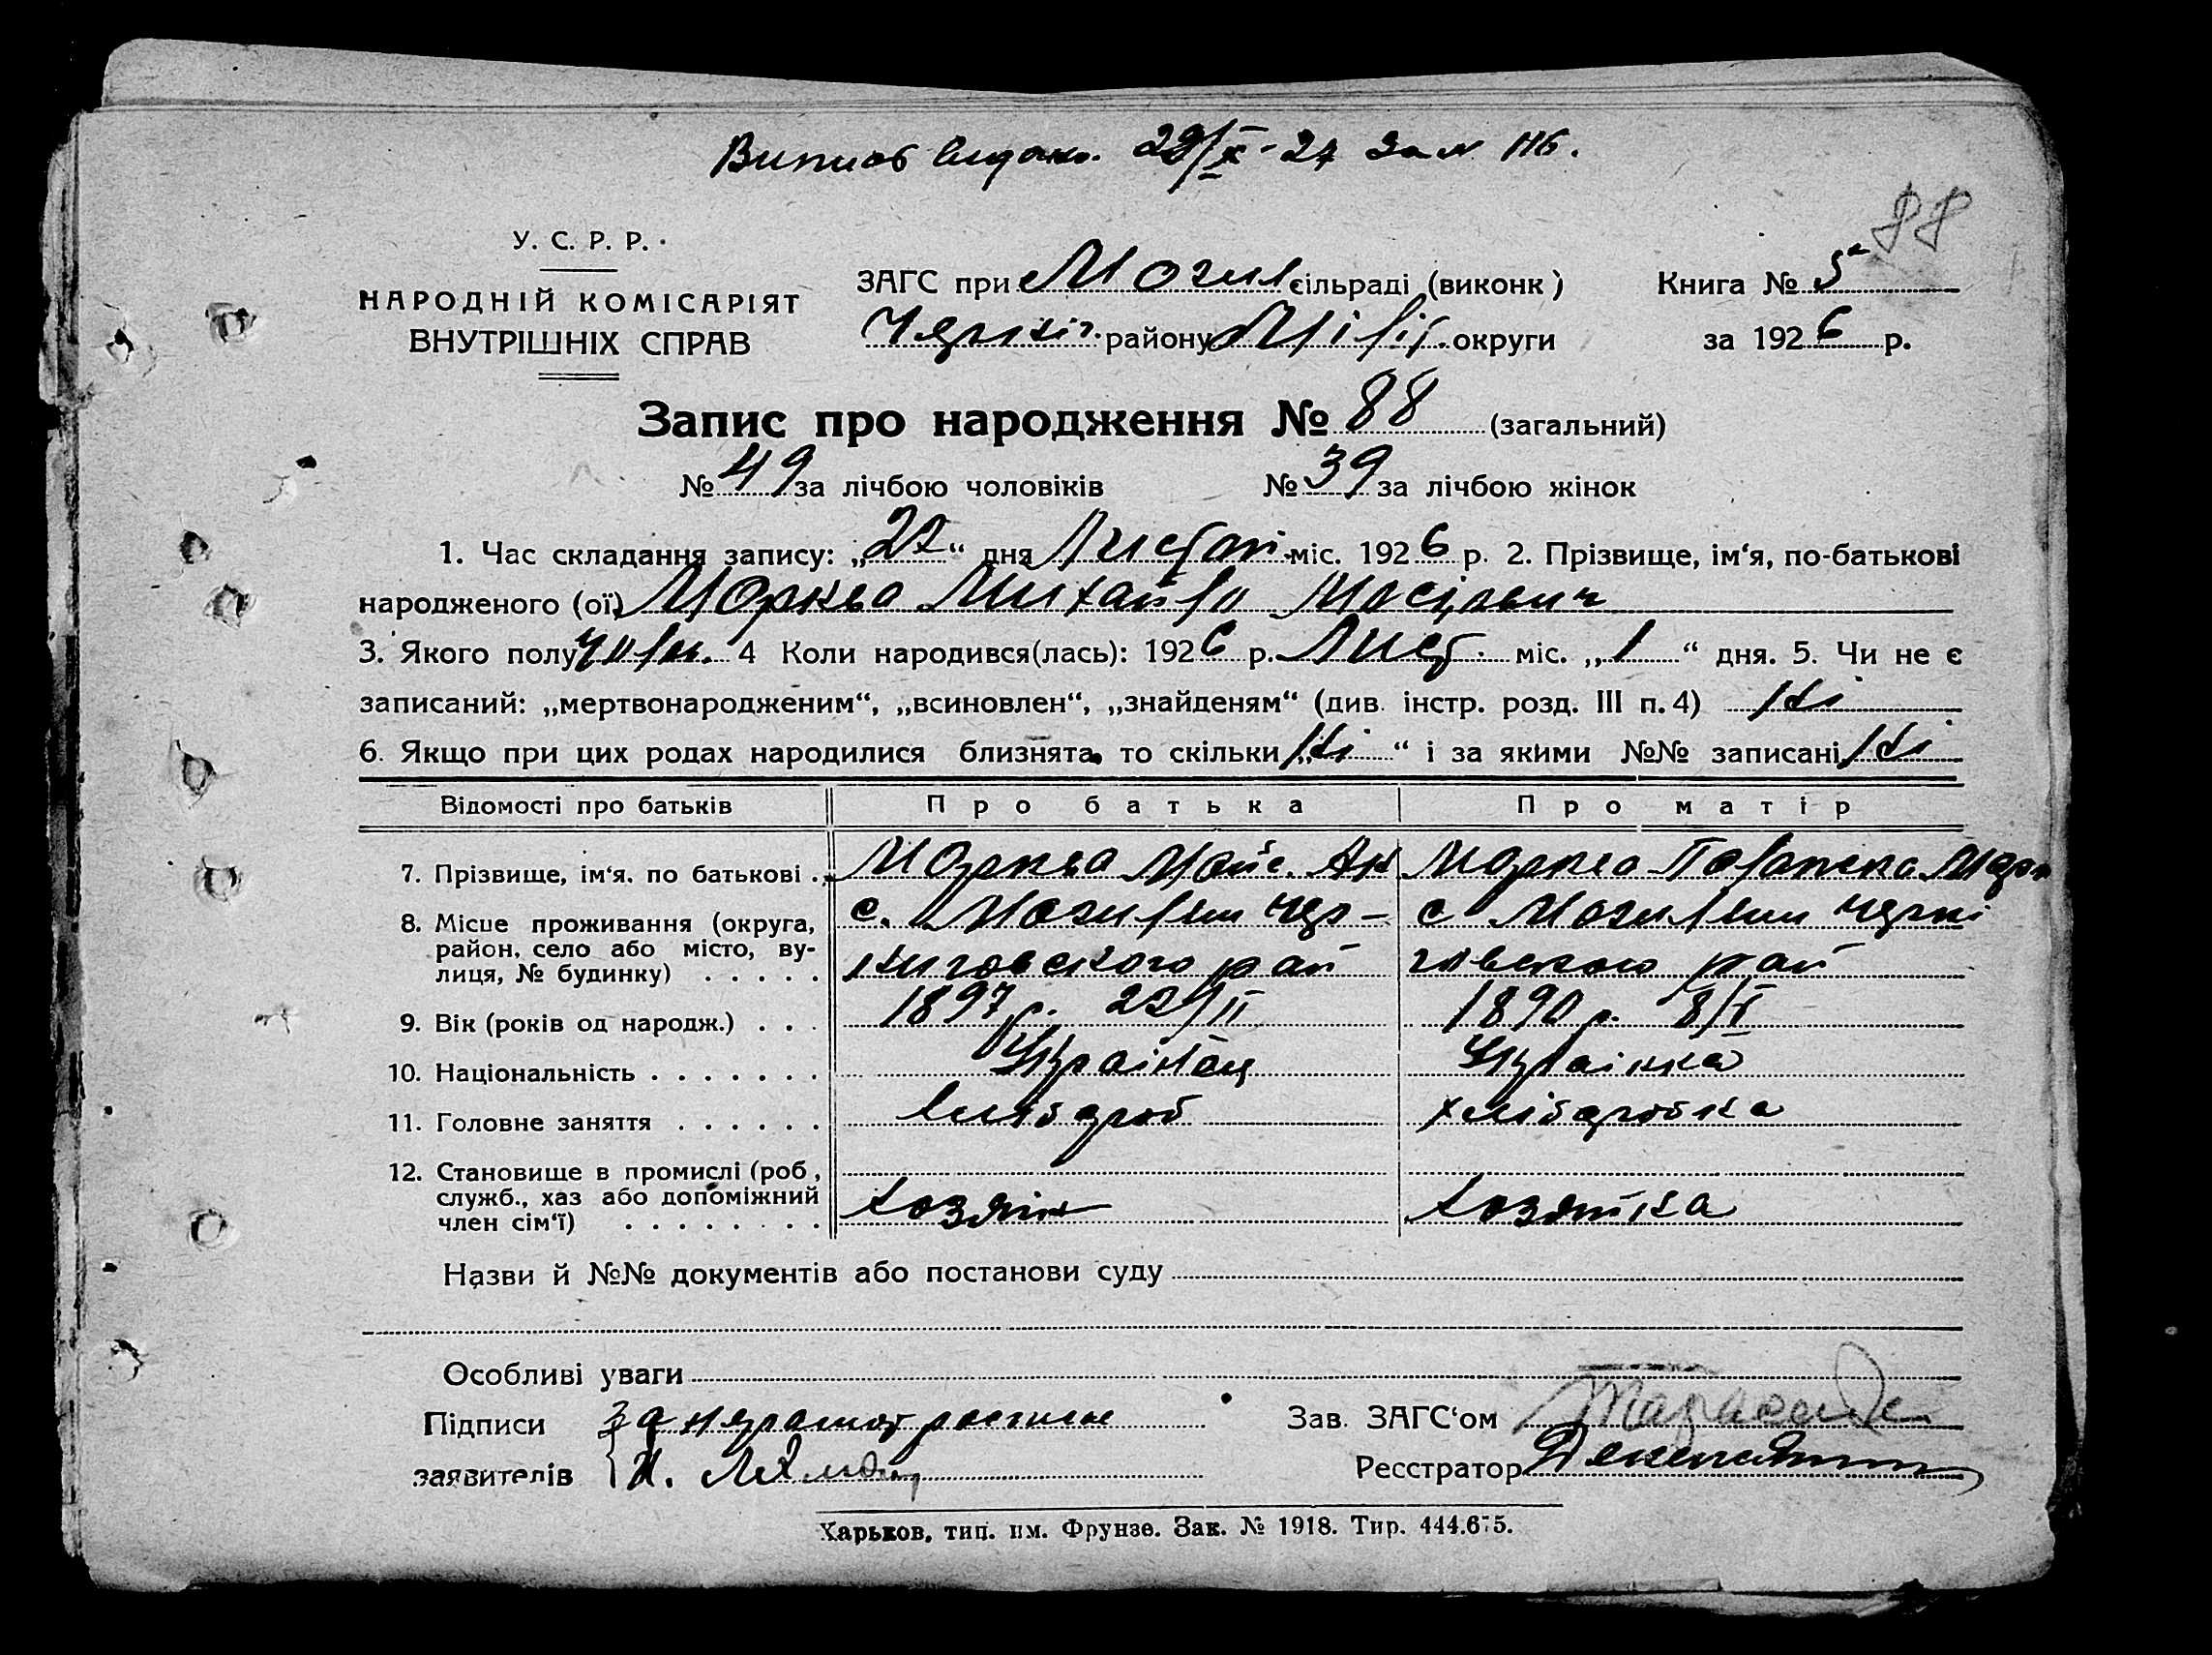 Випис видано. 29/IX-27 за № 116.
88
У. С. Р. Р.
НАРОДНІЙ КОМІСАРІЯТ
ВНУТРІШНІХ СПРАВ
ЗАГС при Могил сільраді (виконк)
Черніг. району округи
Книга № 5
за 1926 р.
Запис про народження № 88 (загальний)
№ 49 за лічбою чоловіків № 39 за лічбою жінок
1. Час складання запису: „27“ дня Листоп. міс. 1926 р. 2. Прізвище, ім‘я, по-батькові
народженого (ої) Морква Михайло
3. Якого полу чол. 4 Коли народився(лась): 1926 р. Лист. міс. „1“ дня. 5. Чи не є
записаний: „мертвонародженим“, „всиновлен“, „знайденям“ (див. інстр. розд. III п. 4) Ні
6. Якщо при цих родах народилися близнята, то скільки „Ні“ і за якими №№ записані Ні
Відомості про батьків Про батька Про матір
7. Прізвище, ім‘я, по батькові . Морква Мойс. Морква
8. Місце проживання (округа, район, село або місто, вулиця, № будинку) . . . . .
с. Могиляни Чер-
ниговского рай
с Могиляни Черні
говского рай
9. Вік (років од народж.) . . . 1897 р. 22/II 1890 р. 8/X
10. Національність . . . . . . . Українец Українка
11. Головне заняття . . . . . . хлібороб хліборобка
12. Становище в промислі (роб, служб., хаз або допоміжний член сім‘ї) . . . . . . . . Хозяін Хозяйка
Назви й №№ документів або постанови суду
Особливі уваги
Підписи За неграмот
заявителів
Зав. ЗАГС‘ом
Ресстратор
Харьков, тип. им. Фрунзе. Зак. № 1918. Тир. 444.675.